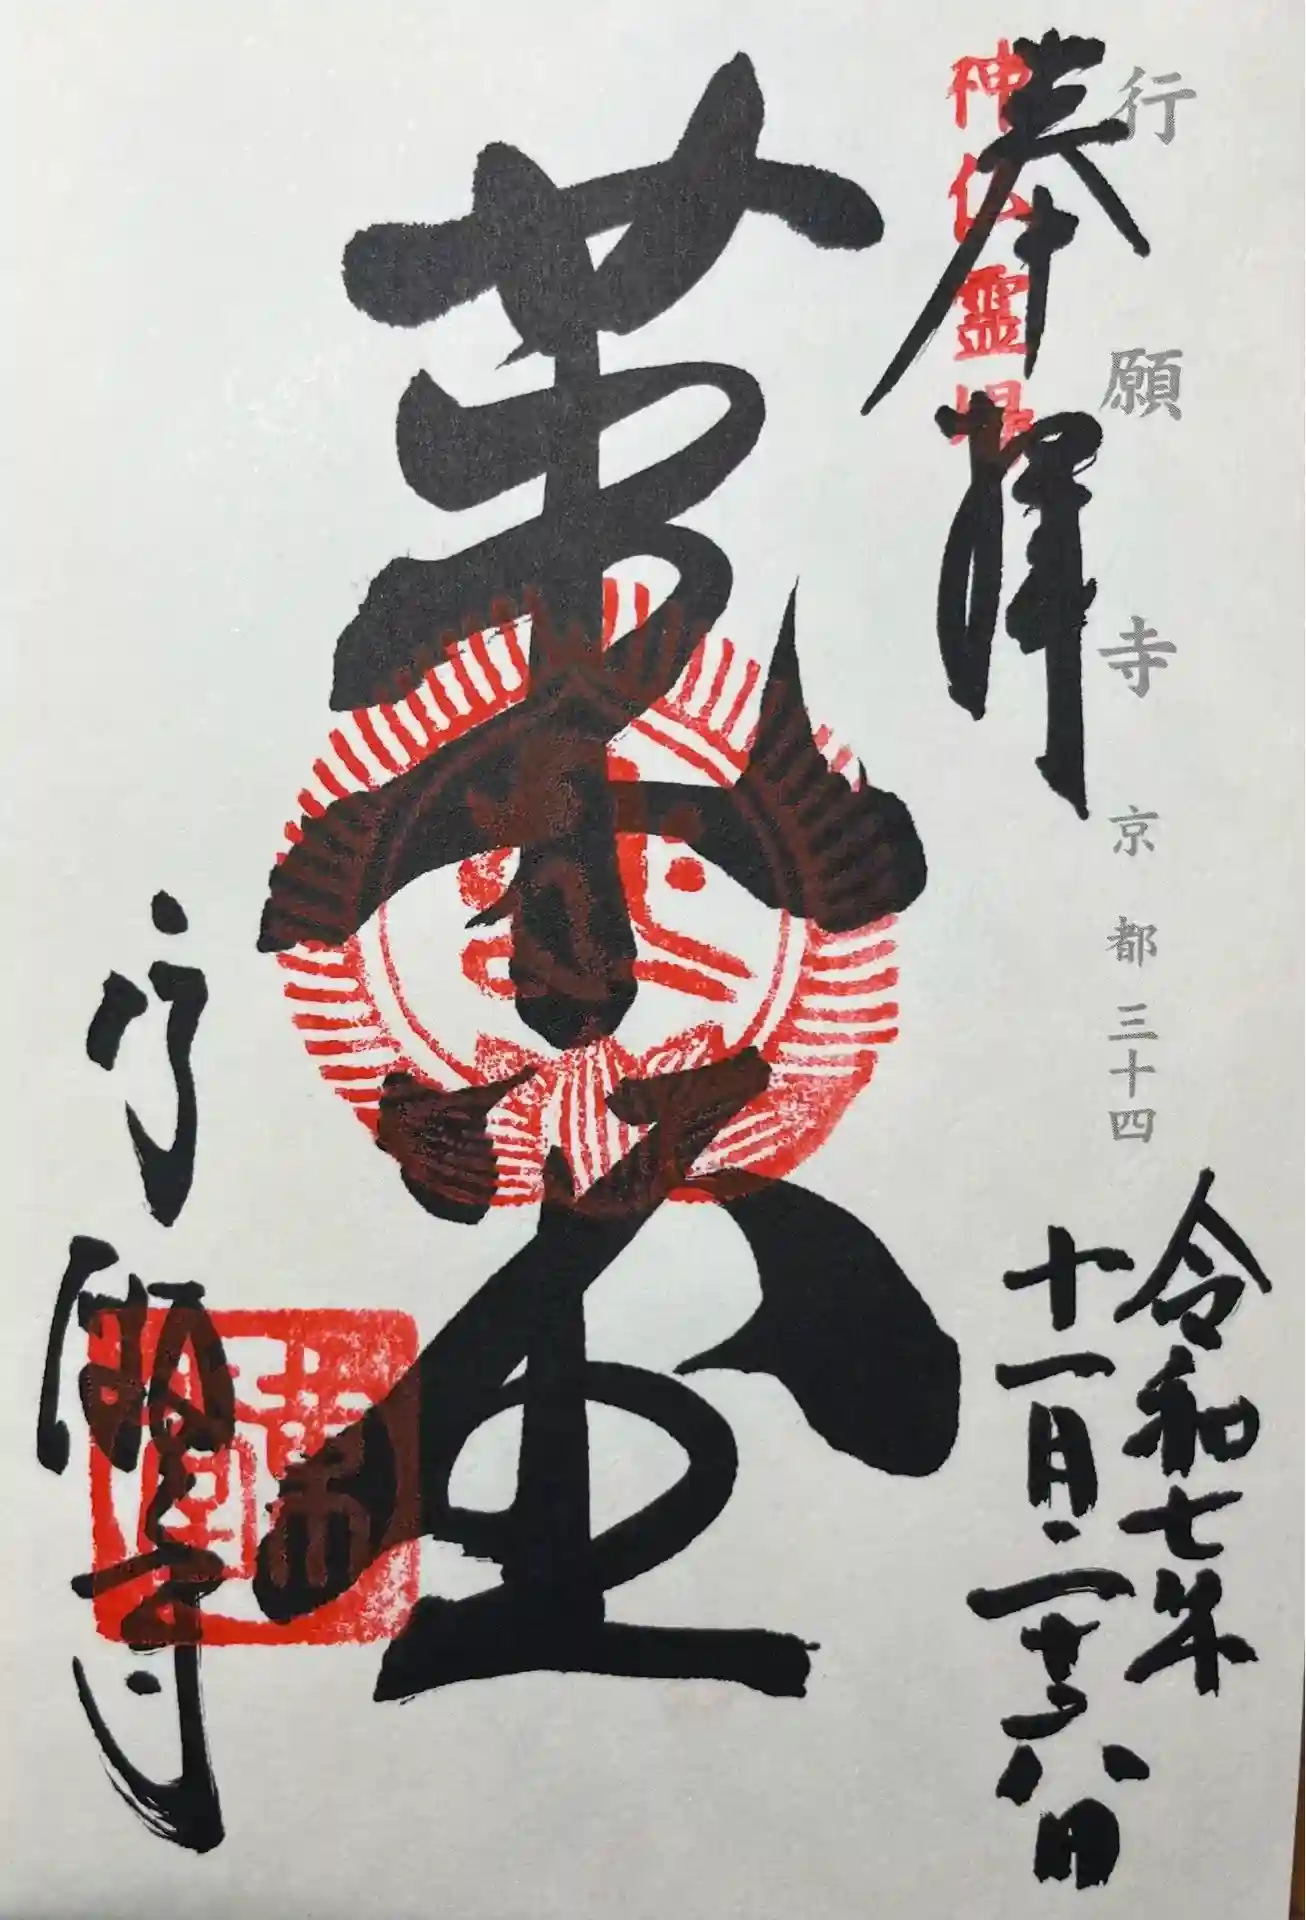 行願寺 京都三十四
令和七年
十一月二十六日
奉拝
神仏霊場
革堂
行願寺